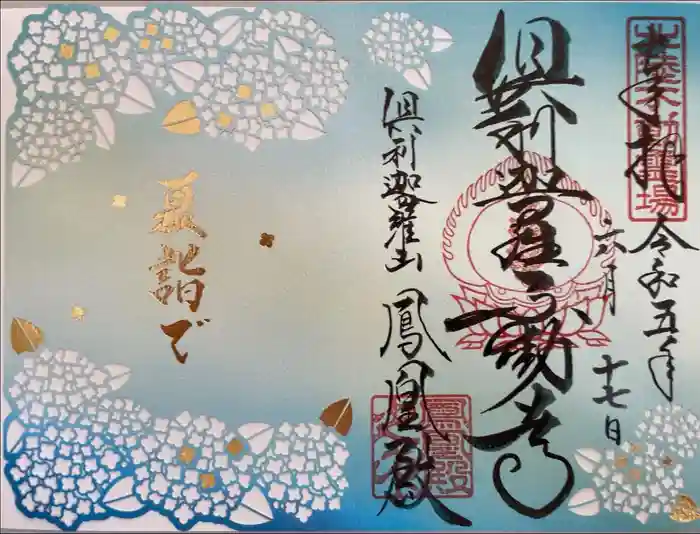 奉拝
北陸不動霊場
令和五年
六月十七日
倶利迦羅不動寺
倶利迦羅山
鳳凰殿
鳳凰殿
夏詣で